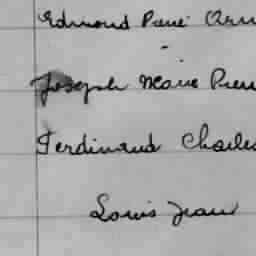 Edmond Pierre
Joseph Marie
Ferdinand Charles
Louis Jean